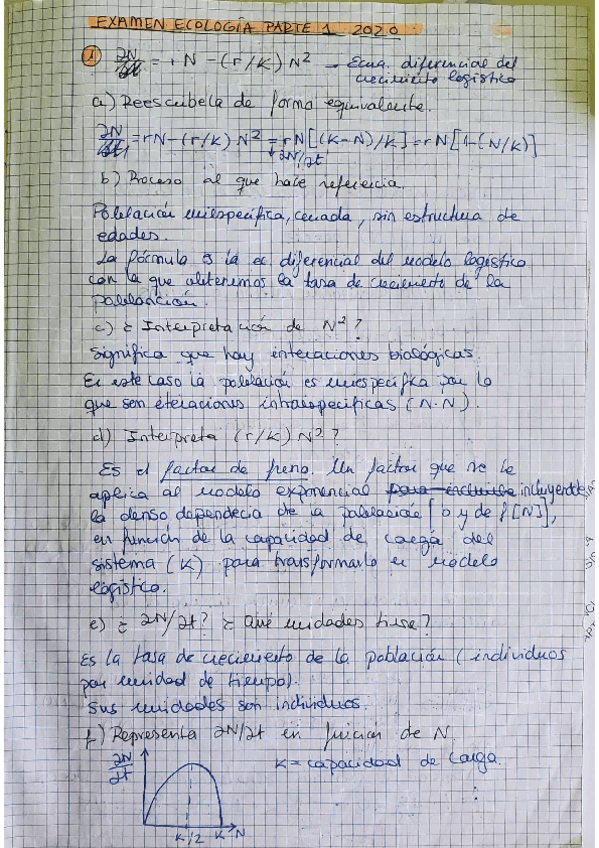 EXAMEN ECOLOGÍA PARTE 1 2020
① ∂N/∂t = rN - (r/K) N² → Ecua. diferencial del
crecimiento logístico
a) Reescríbela de forma equivalente.
∂N/∂t = rN - (r/K) N² = rN [(K-N)/K] = rN [1-(N/K)]
↓ ∂N/∂t
b) Proceso al que hace referencia.
Población uniespecífica, cerrada, sin estructura de
edades.
La fórmula es la ec. diferencial del modelo logístico
con la que obtenemos la tasa de crecimiento de la
población.
c) ¿Interpretación de N²?
Significa que hay interaciones biológicas.
En este caso la población es uniespecífica por lo
que son interaciones intraespecíficas (N·N).
d) Interpreta (r/K) N²?
Es el factor de freno. Un factor que se le
aplica al modelo exponencial para incluirle incluyendo
la denso dependecia de la población [b y d = f[N]],
en función de la capacidad de carga del
sistema (K) para transformarlo en modelo
logístico.
e) ¿∂N/∂t? ¿Qué unidades tiene?
Es la tasa de crecimiento de la población (individuos
por unidad de tiempo).
Sus unidades son individuos.
f) Representa ∂N/∂t en función de N.
∂N/∂t
K = capacidad de carga.
K/2 K N